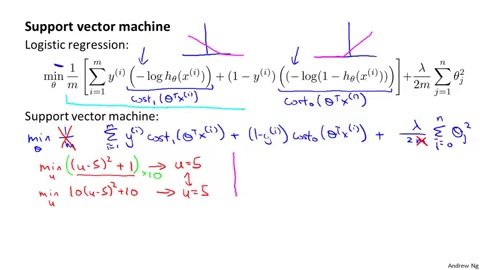 Support vector machine
Logistic regression:
min_θ 1/m [ ∑_{i=1}^{m} y^{(i)} (−log h_θ(x^{(i)})) + (1 − y^{(i)}) ((−log(1 − h_θ(x^{(i)}))) ] + λ/2m ∑_{j=1}^{n} θ_j^2
cost₁(θᵀx^{(i)}) cost₀(θᵀx^{(i)})
Support vector machine:
min_θ 1/m ∑_{i=1}^{m} y^{(i)} cost₁(θᵀx^{(i)}) + (1−y^{(i)}) cost₀(θᵀx^{(i)}) + λ/2m ∑_{i=0}^{n} θ_j^2
min_u ((u−5)² + 1) ×10 → u=5
min_u 10(u−5)²+10 → u=5
Andrew Ng